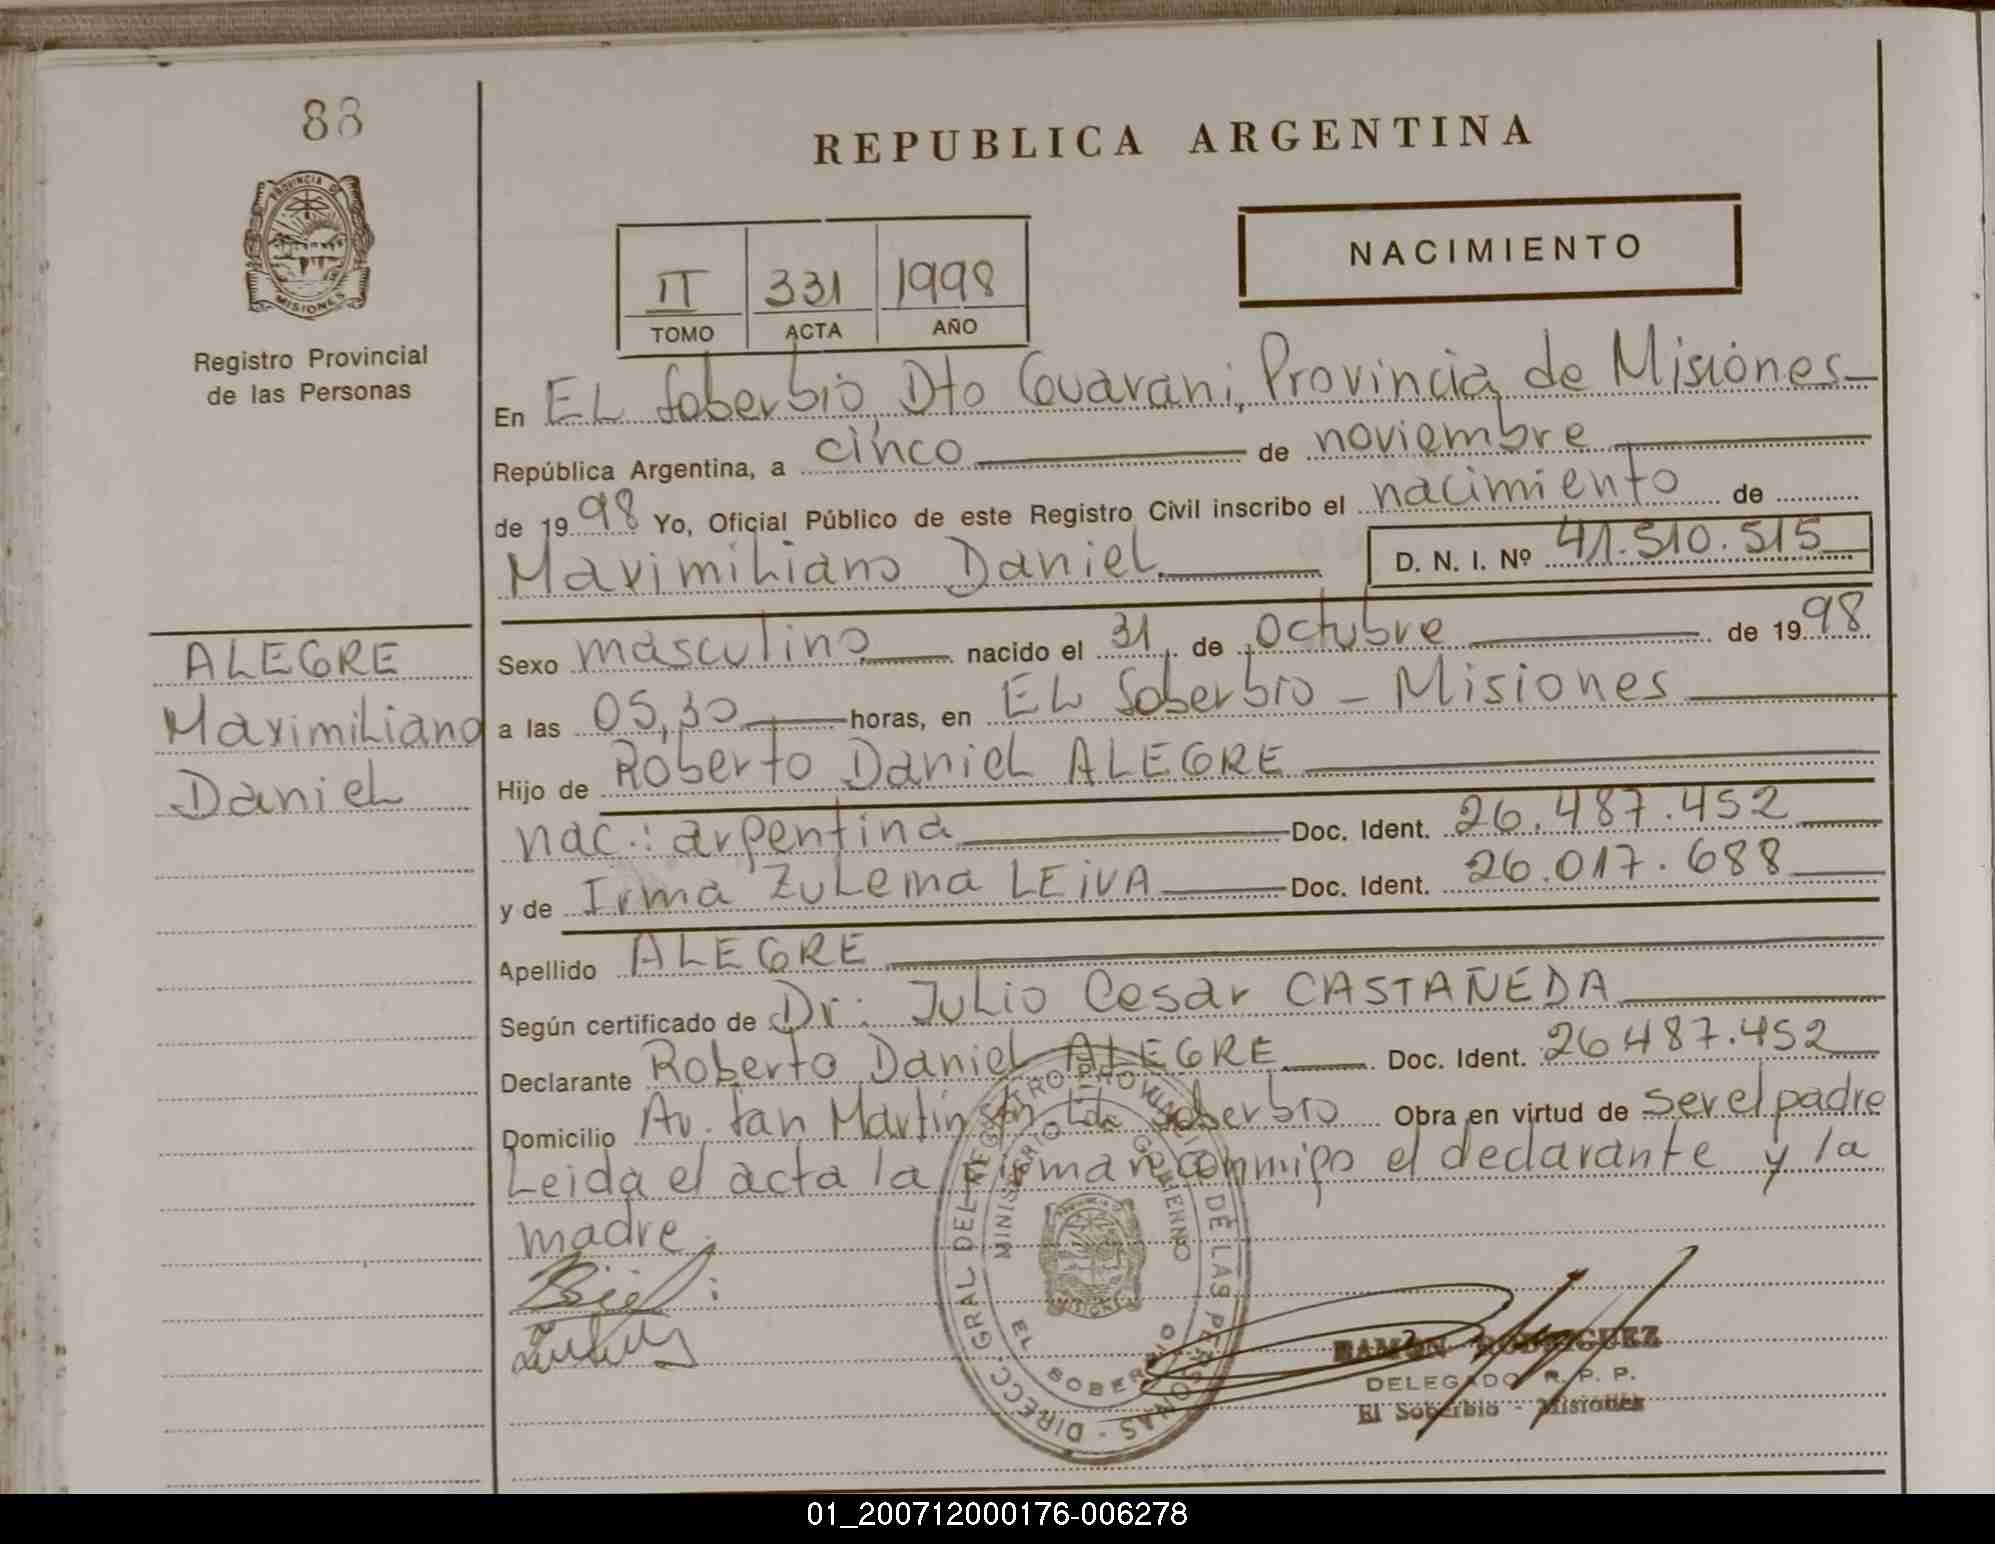 88
PROVINCIA DE
MISIONES
Registro Provincial
de las Personas
REPUBLICA ARGENTINA
NACIMIENTO
II 331 1998
TOMO ACTA AÑO
En EL Soberbio, Dto Guarani, Provincia de Misiones
República Argentina, a cinco de noviembre
de 1998 Yo, Oficial Público de este Registro Civil inscribo el nacimiento de
Maximiliano Daniel D. N. I. Nº 41.510.515
ALEGRE
Maximiliano
Daniel
Sexo masculino nacido el 31 de Octubre de 1998
a las 05,30 horas, en EL Soberbio - Misiones
Hijo de Roberto Daniel ALEGRE
nac.: argentina Doc. Ident. 26.487.452
y de Irma Zulema LEIVA Doc. Ident. 26.017.688
Apellido ALEGRE
Según certificado de Dr: Julio Cesar CASTAÑEDA
Declarante Roberto Daniel ALEGRE Doc. Ident. 26487.452
Domicilio Av. San Martin Soberbio Obra en virtud de ser el padre
Leida el acta la firman conmigo el declarante y la
madre.
DIRECC. GRAL DEL REGISTRO PROVINCIAL DE LAS PERSONAS
MINISTERIO DE GOBIERNO
EL SOBERBIO
RAMON RODRIGUEZ
DELEGADO R. P. P.
El Soberbio - Misiones
01_200712000176-006278